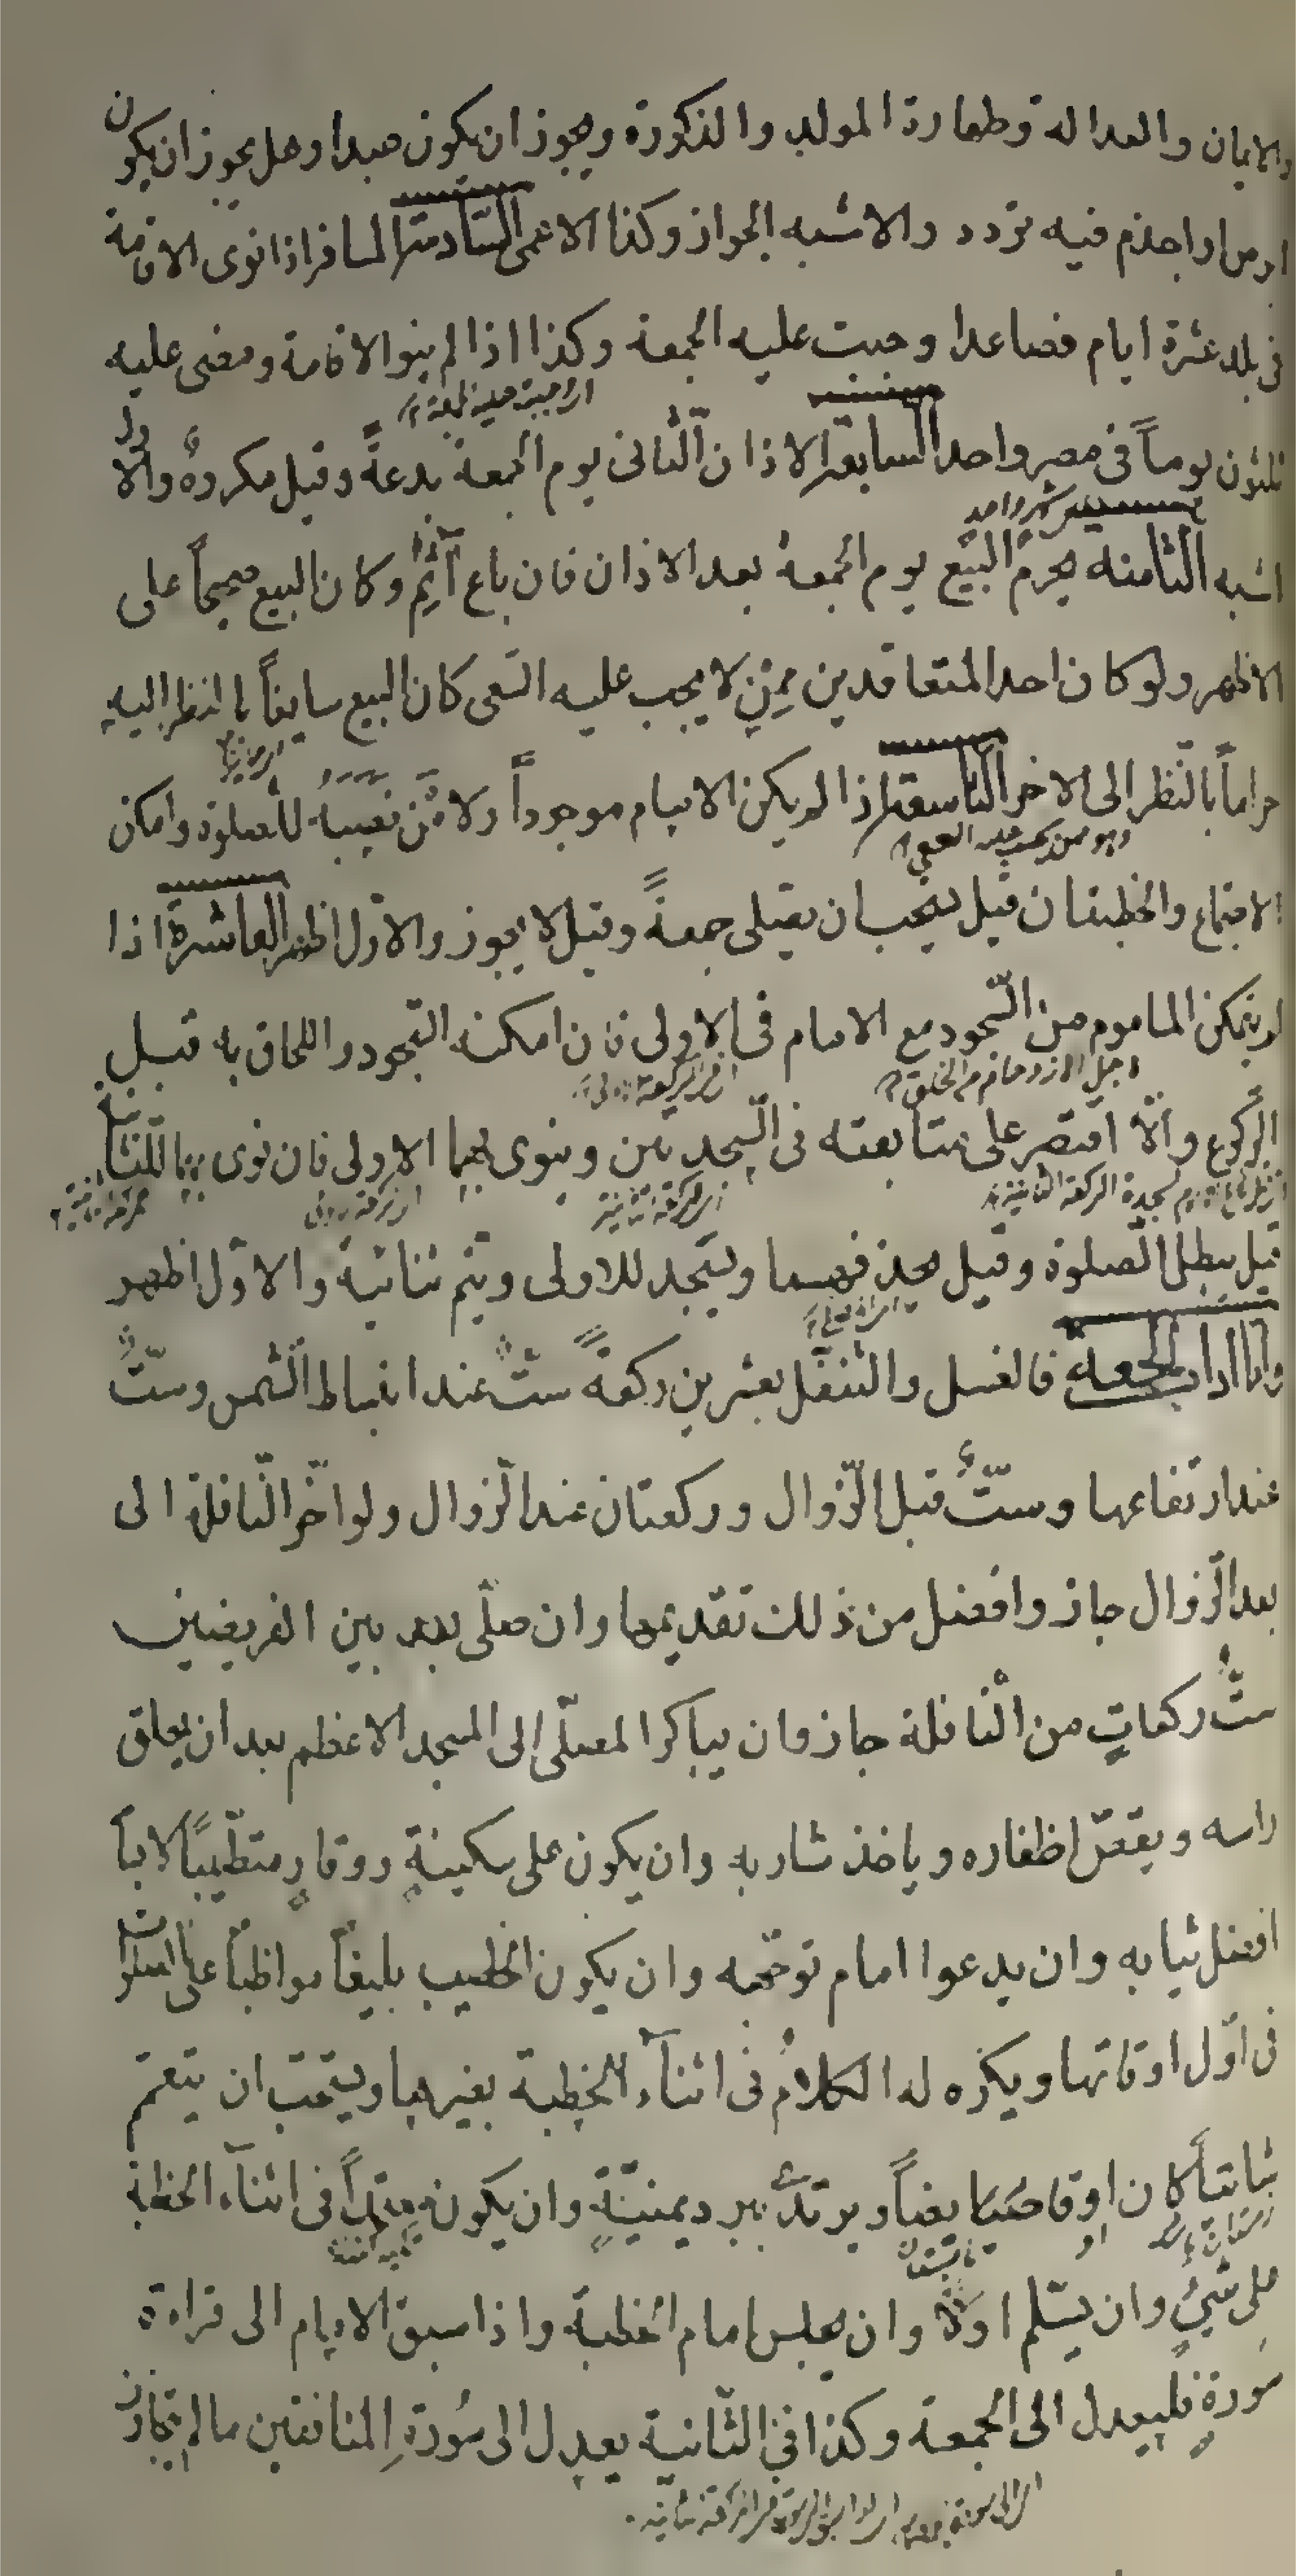 والايمان والعدالة وطهارة المولد والذكورة ويجوز ان يكون عبدا وهل يجوز ان يكون
ابرص او اجذم فيه تردد والاشبه الجواز وكذا الاعمى السّادسة المسافر اذا نوى الاقامة
فى بلد عشرة ايام فصاعدا وجبت عليه الجمعة وكذا اذا لم ينو الاقامة ومضى عليه
ثلثون يوماً فى مصر واحد السّابعة الاذان الثّانى يوم الجمعة بدعةً وقيل مكروهٌ والاول
اشبه الثّامنه يحرم البيع يوم الجمعة بعد الاذان فان باع اَثِمَ وكان البيع صحيحاً على
الاظهر ولو كان احد المتعاقدين مِمَّنْ لا يجب عليه السّعى كان البيع سايغاً بالنظر اليه
حراماً بالنّظر الى الاخر التّاسعة اذا لم يكن الامام موجوداً ولا مَنْ نصبهُ للصلوة وامكن
الاجتماع والخطبتان قيل يستحب ان يصلى جمعةً وقيل لا يجوز والاوّل اظهر العاشرة اذا
لم يتمكن الماموم من السّجود مع الامام فى الاولى فان امكنه السّجود واللحاق به قبل
الرّكوع والّا اقتصر على متابعته فى السّجدتين وينوى بهما الاولى فان نوى بهما للثّانية
قيل يبطل الصّلوة وقيل يحذفهما ويسجد للاولى ويتم ثنائية والاوّل اظهر
وامّا اداب الجمعة فالغسل والتنفّل بعشرين ركعةً ستٌّ عند انبساط الشّمس وستٌّ
عند ارتفاعها وستٌّ قبل الزّوال وركعتان عند الزّوال ولو اخّر النّافلة الى
بعد الزّوال جاز وافضل من ذلك تقديمها وان صلّى بعد بين الفريضتين
ستُّ ركعاتٍ من النّافلة جاز وان يباكر المصلّى الى المسجد الاعظم بعد ان يحلق
راسه ويقصّ اظفاره وياخذ شاربه وان يكون على سكينةٍ ووقارٍ متطيّبًا لابساً
افضل ثيابه وان يدعوا امام توجّهه وان يكون الخطيب بليغاً مواظباً على الصلوات
فى اوّل اوقاتها ويكره له الكلامُ فى اثنآء الخطبة بغيرها ويستحبّ ان يتعمّم
شاتياً كان او قايضاً ويرتدى ببرد يمنيّةٍ وان يكون معتمداً فى اثنآء الخطبة
على شىءٍ وان يسّلم اولًا وان يجلس امام الخطبة واذا سبق الامام الى قراءة
سورةٍ فليعدل الى الجمعة وكذا فى الثّانية يعدل الى سُورةِ المنافقين ما لم يتجاوز